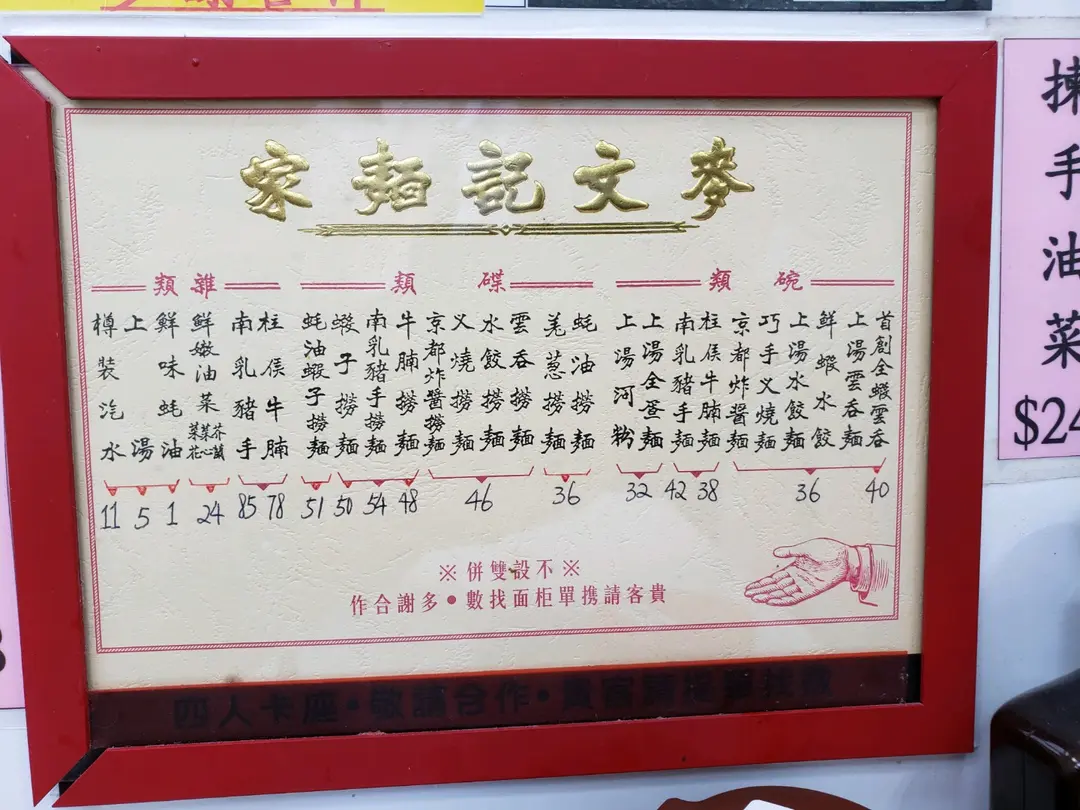 麥文記麵家
碗類
首創全蝦雲吞
上湯雲吞麵
鮮蝦水餃
上湯水餃麵
巧手义燒麵
京都炸醬麵
柱侯牛腩麵
南乳豬手麵
上湯全蛋麵
上湯河粉
40
36
38
42
32
碟類
蚝油撈麵
羌葱撈麵
雲吞撈麵
水餃撈麵
义燒撈麵
京都炸醬撈麵
牛腩撈麵
南乳豬手撈麵
蝦子撈麵
蚝油蝦子撈麵
36
46
48
54
50
51
雜類
柱侯牛腩
南乳豬手
鮮嫩油菜
芥蘭
菜心
菜花
鮮味蚝油
上湯
樽裝汽水
78
85
24
1
5
11
※不設雙併※
貴客請携單柜面找數•多謝合作
四人卡座•敬請合作•貴客請
揀手油菜
$24